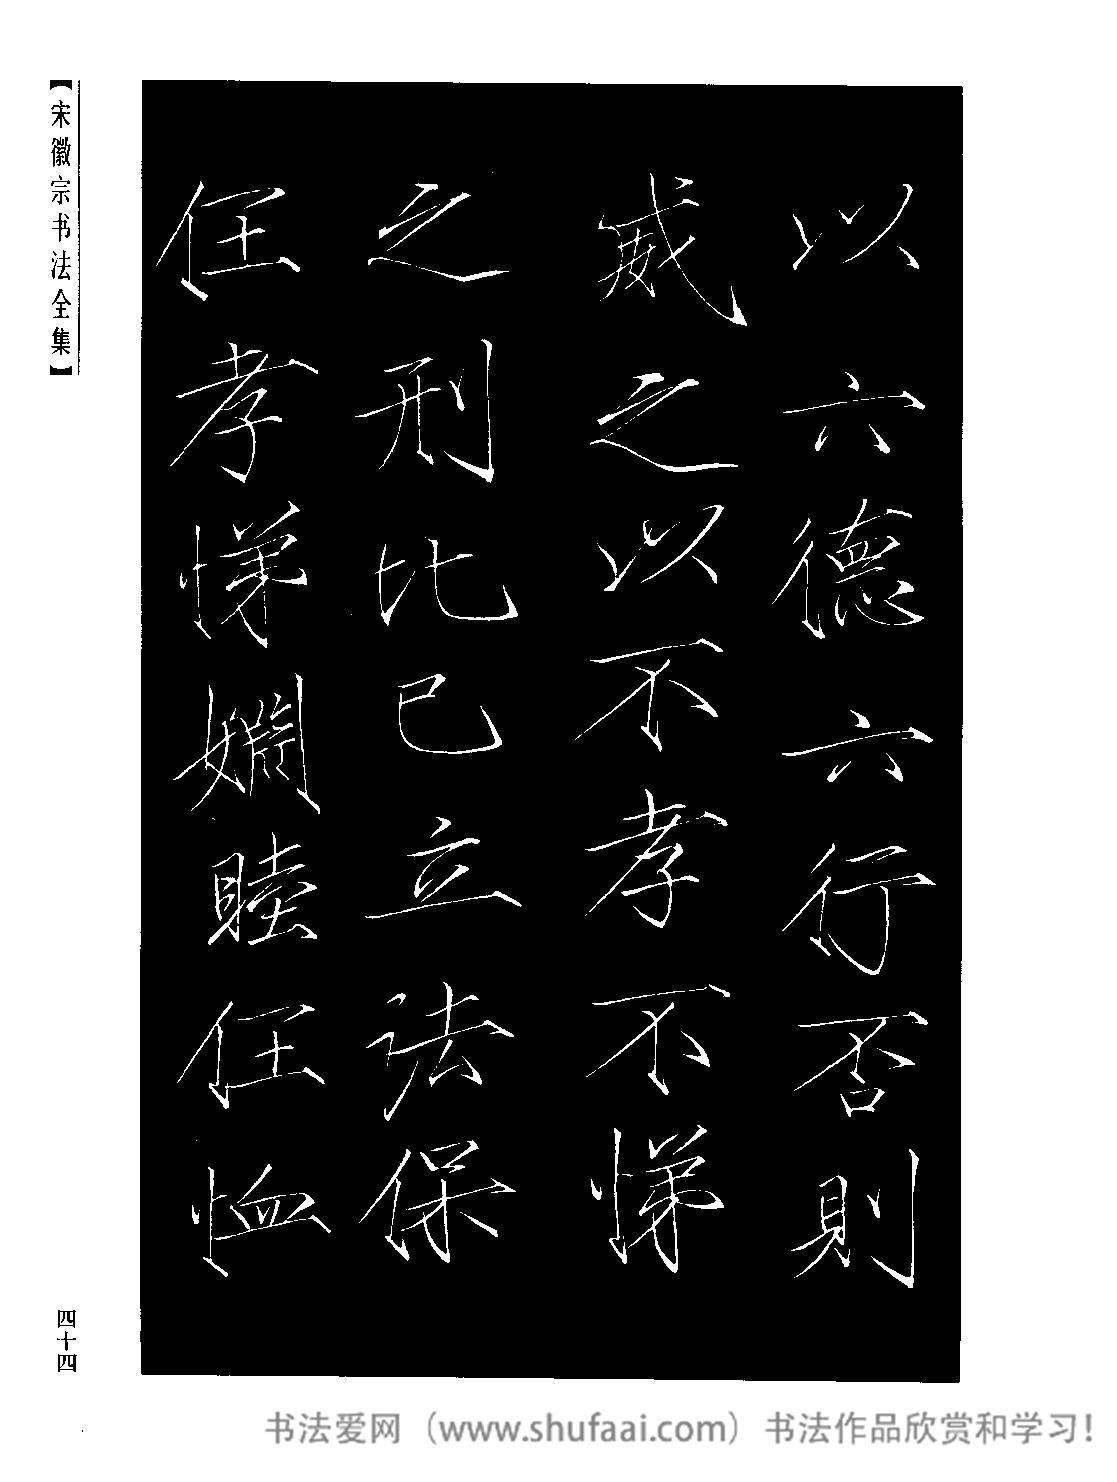 以六德六行否則
威之以不孝不悌
之刑比已立法保
任孝悌嫻睦任恤
【宋徽宗书法全集】
四十四
书法爱网（www.shufaai.com）书法作品欣赏和学习！